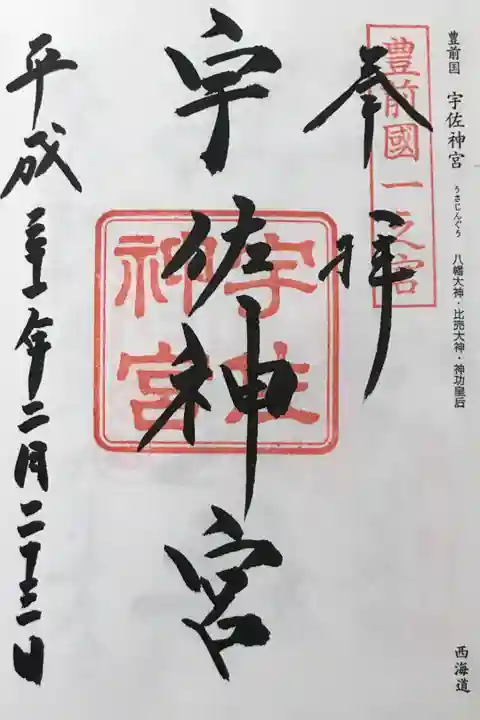 豊前国 宇佐神宮 うさじんぐう 八幡大神・比売大神・神功皇后
西海道
豊前國一之宮
奉拝
宇佐神宮
宇佐
神宮
平成三十一年二月二十三日